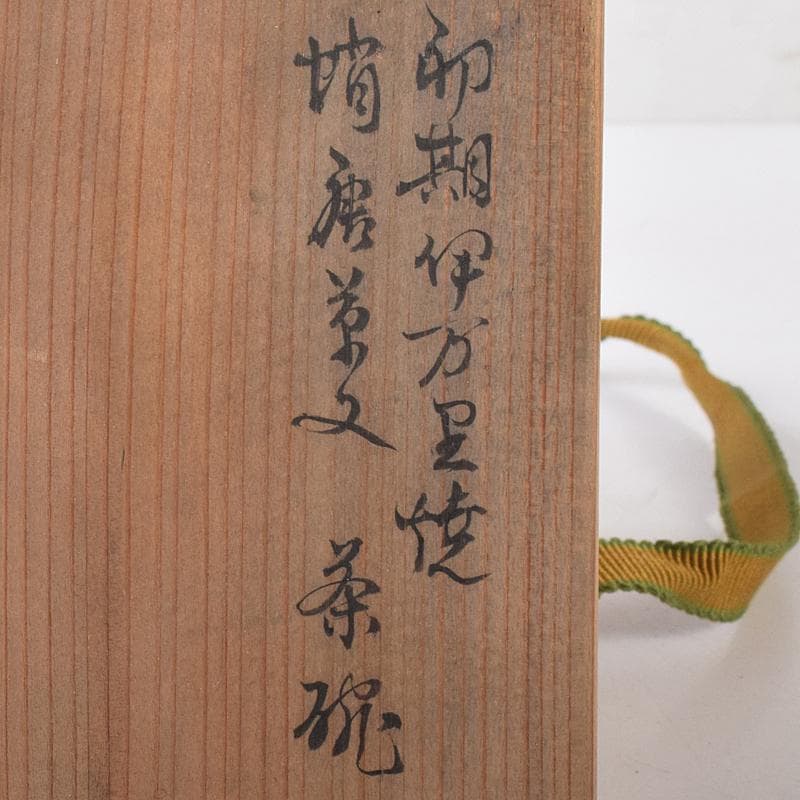 初期伊万里焼
蛸唐草文 茶碗